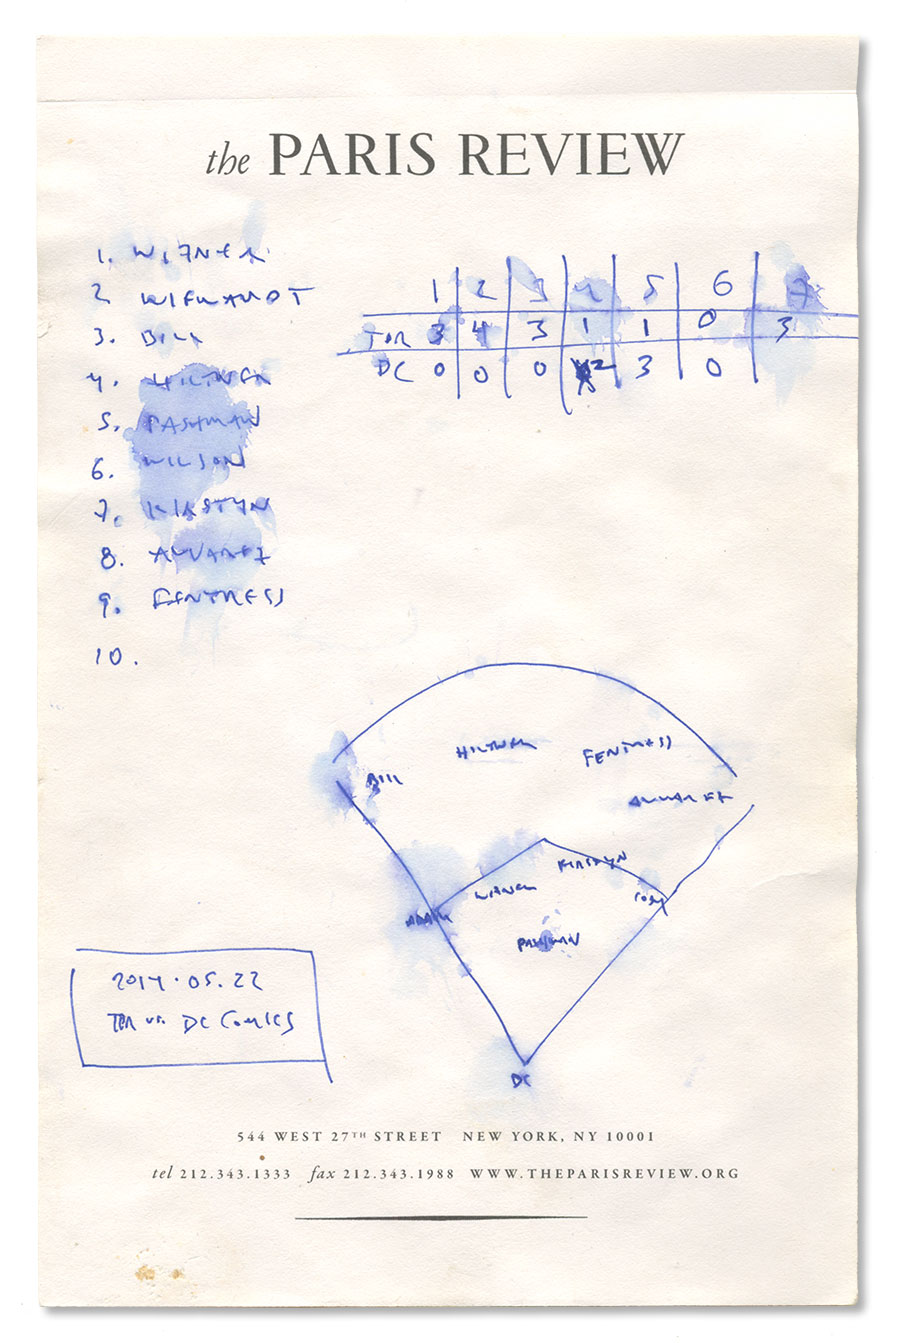 the PARIS REVIEW
1. WITNER
2 WIEWANDT
3. BILL
4. HILTNER
5. PASHMAN
6. WILSON
7. KIRSTYN
8. ALVAREZ
9. FENTRESS
10.
1 2 3 4 5 6 7
TPR 3 4 3 1 1 0 3
DC 0 0 0 2 3 0
HILTNER FENTRESS
BILL
ALVAREZ
KIRSTYN
ADAM
PASHMAN
DC
2014.05.22
TPR vs. DC COMICS
544 WEST 27TH STREET NEW YORK, NY 10001
tel 212.343.1333 fax 212.343.1988 WWW.THEPARISREVIEW.ORG